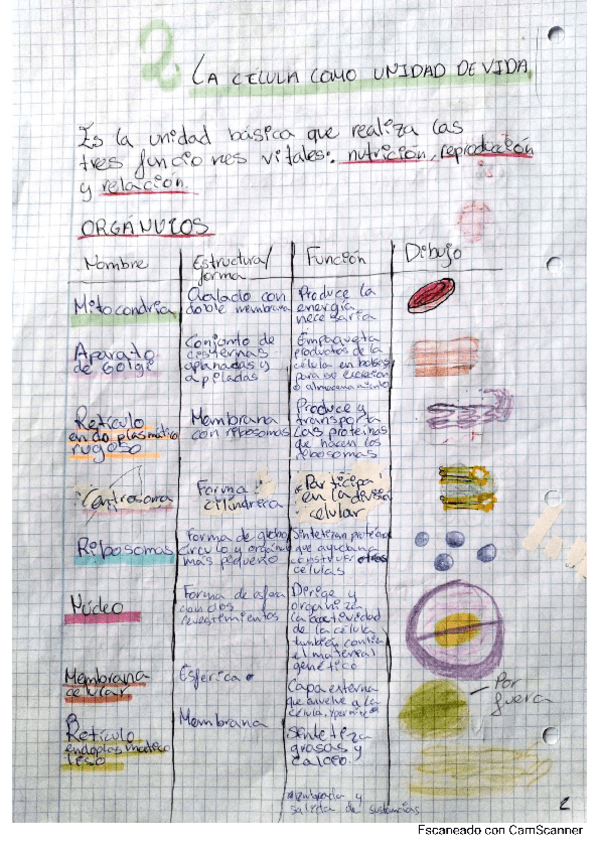 2. LA CÉLULA COMO UNIDAD DE VIDA
Es la unidad básica que realiza las
tres funciones vitales: nutrición, reproducción
y relación.
ORGÁNULOS
Nombre
Estructura/
forma
Función
Dibujo
Mitocondria
Ovalado con
doble membrana
Produce la
energía
necesaria
Aparato
de Golgi
Conjunto de
cisternas
aplanadas y
apiladas
Empaqueta
productos de la
célula en bolsas
para su excreción
o almacenamiento
Retículo
endoplasmático
rugoso
Membrana
con ribosomas
Produce y
transporta
las proteínas
que hacen los
ribosomas
Centrosoma
Forma
cilíndrica
Participa
en la división
celular
Ribosomas
Forma de globo
círculo y orgánulo
más pequeño
Sintetizan proteínas
que ayudan a
construir otras
células
Núcleo
Forma de esfera
con dos
revestimientos
Dirige y
organiza
la actividad
de la célula
también contiene
el material
genético
Membrana
celular
Esférica
Capa externa
que envuelve a la
célula, permite*
Por
fuera
Retículo
endoplasmático
liso
Membrana
Sintetiza
grasas y
calcio.
*entrada y
salida de sustancias
2
Escaneado con CamScanner